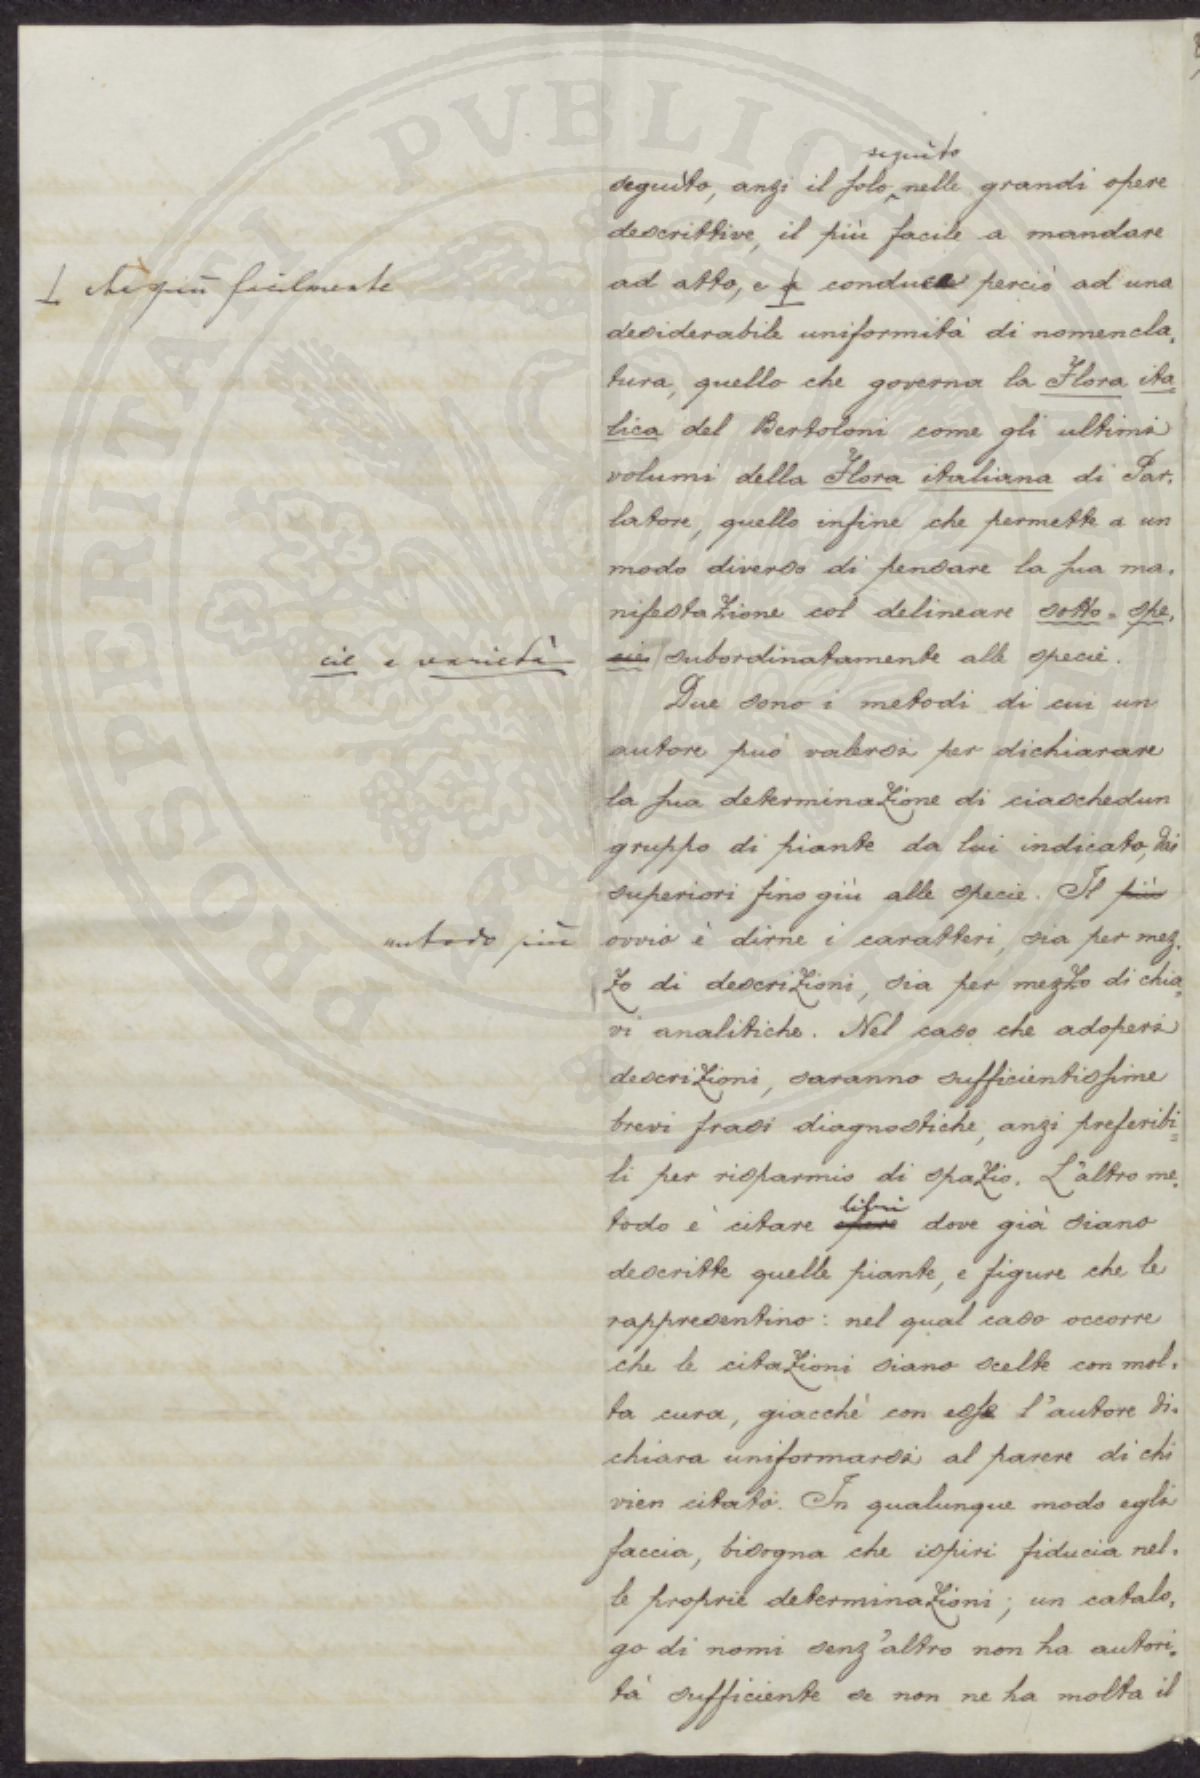 seguito
seguìto, anzi il solo nelle grandi opere
descrittive, il più facile a mandare
che più facilmente
ad atto, e conduce perciò ad una
desiderabile uniformità di nomencla-
tura, quello che governa la Flora ita-
lica del Bertoloni come gli ultimi
volumi della Flora italiana di Par-
latore, quello infine che permette a un
modo diverso di pensare la sua ma-
nifestazione col delineare sotto-spe-
cie e varietà
cie subordinatamente alle specie.
Due sono i metodi di cui un
autore può valersi per dichiarare
la sua determinazione di ciaschedun
gruppo di piante da lui indicato, dai
superiori fino giù alle specie. Il più
metodo più
ovvio è dirne i caratteri, sia per mez-
zo di descrizioni, sia per mezzo di chia-
vi analitiche. Nel caso che adoperi
descrizioni, saranno sufficientissime
brevi frasi diagnostiche, anzi preferibi-
li per risparmio di spazio. L'altro me-
libri
todo è citare opere dove già siano
descritte quelle piante, e figure che le
rappresentino: nel qual caso occorre
che le citazioni siano scelte con mol-
ta cura, giacché con esse l'autore di-
chiara uniformarsi al parere di chi
vien citato. In qualunque modo egli
faccia, bisogna che ispiri fiducia nel-
le proprie determinazioni; un catalo-
go di nomi senz'altro non ha autori-
tà sufficiente se non ne ha molta il
PROSPERITATI PVBLICAE